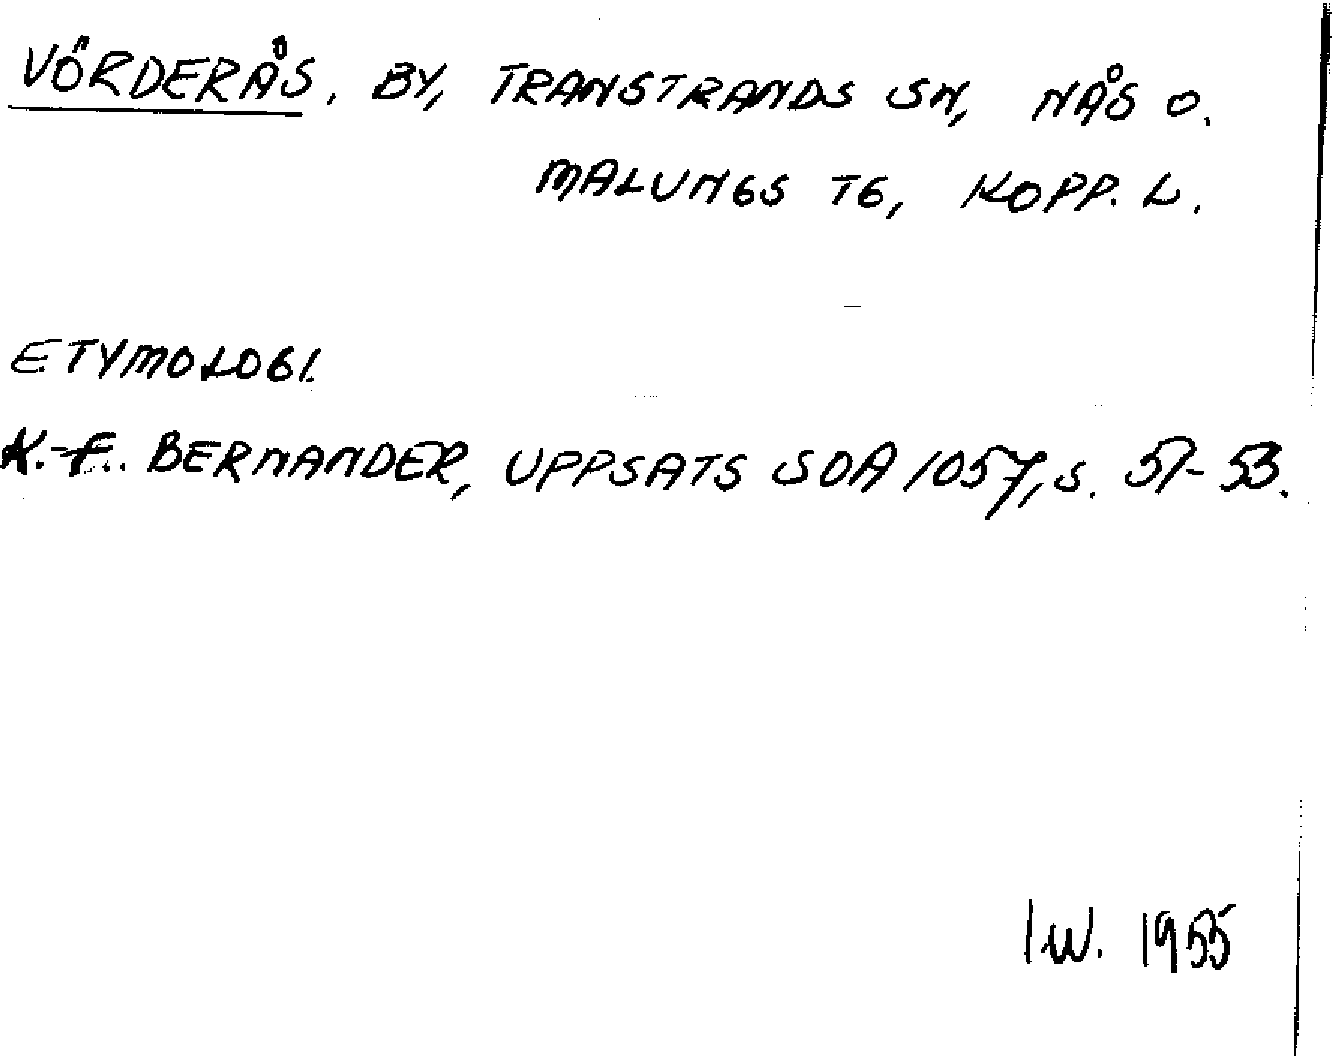 VÖRDERÅS, BY, TRANSTRANDS SN, NÅS O.
MALUNGS TG, KOPP. L.
ETYMOLOGI.
K.-F. BERNANDER, UPPSATS SOA 1057, S. 51-53.
IW. 1955